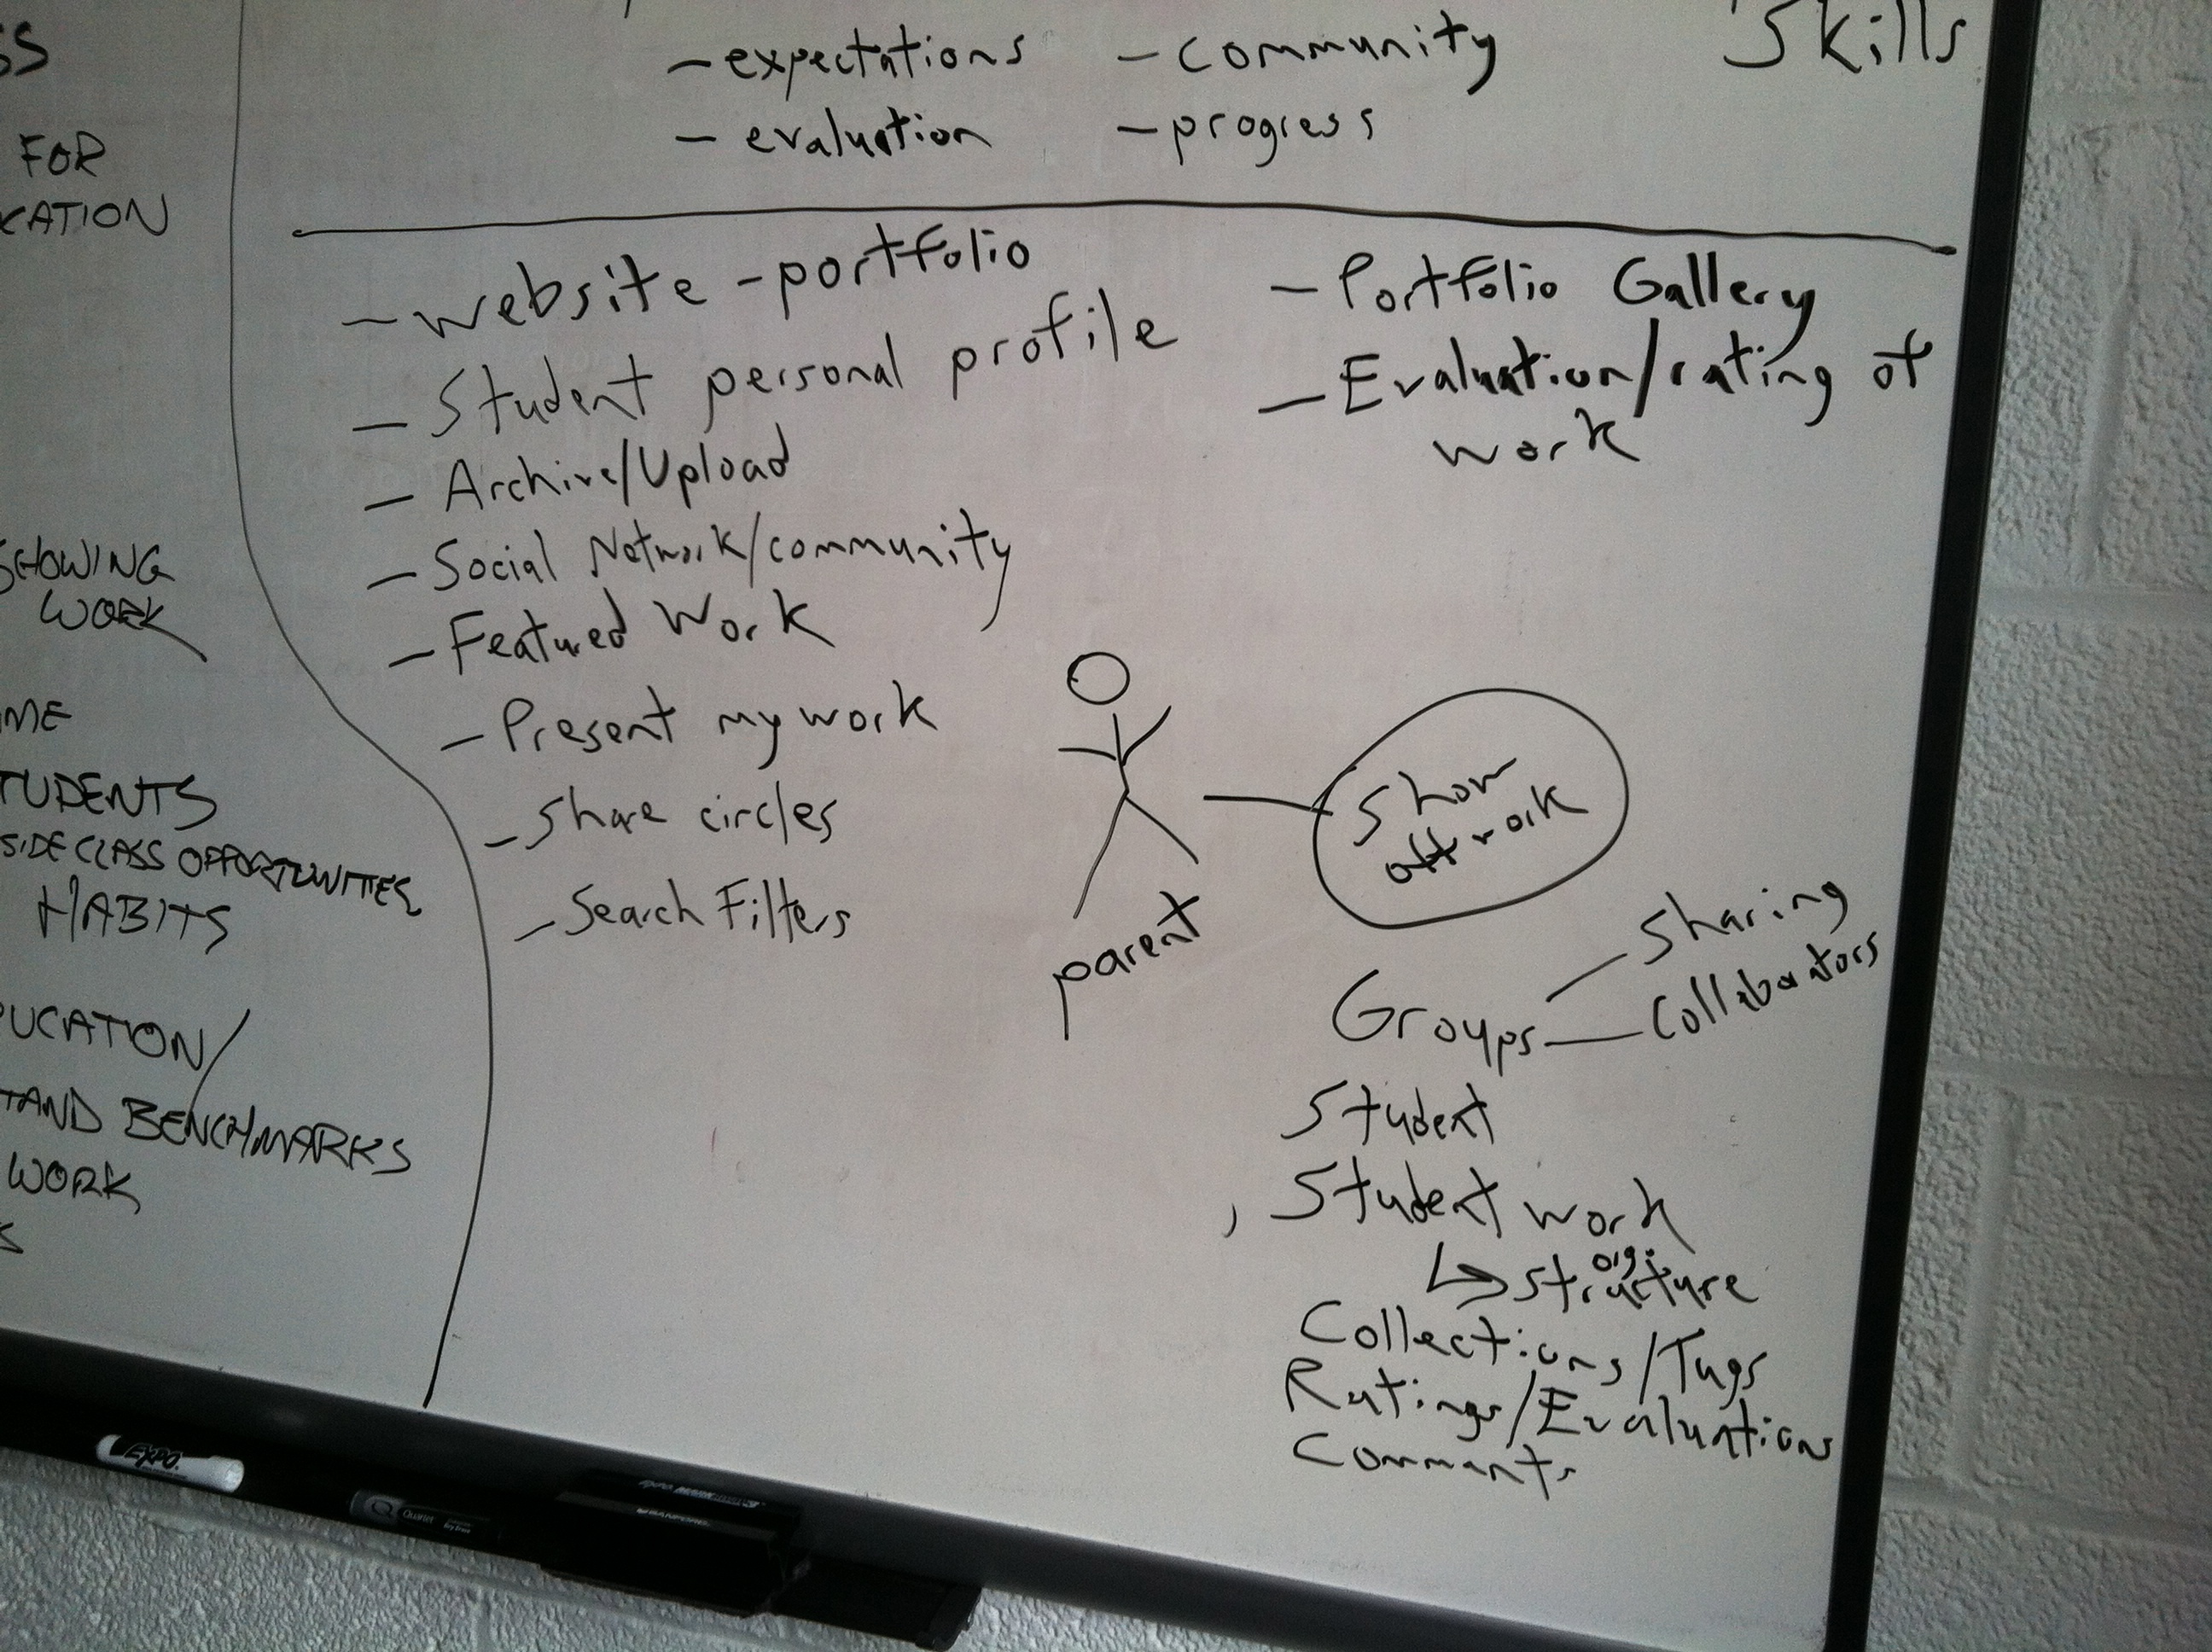 SS
FOR
CATION
SHOWING
WORK
ME
TUDENTS
SIDE CLASS OPPORTUNITIES
HABITS
UCATION/
TAND BENCHMARKS
WORK
S
- expectations - community
- evaluation - progress
Skills
- website - portfolio
- Student personal profile
- Archive/Upload
- Social Network/community
- Featured Work
- Present my work
- Share circles
- Search Filters
- Portfolio Gallery
- Evaluation/rating of
work
parent
Show
off work
Groups - Sharing
- Collaborators
Student
Student work
↳ org. structure
Collections/Tags
Ratings/Evaluations
Comments
EXPO
Quartet